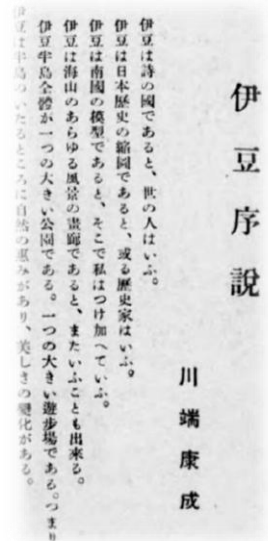 伊豆序說
川端康成
伊豆は詩の國であると、世の人はいふ。
伊豆は日本歷史の縮圖であると、或る歷史家はいふ。
伊豆は南國の模型であると、そこで私はつけ加へていふ。
伊豆は海山のあらゆる風景の畫廊であると、またいふことも出來る。
伊豆半島全體が一つの大きい公園である。一つの大きい遊步場である。つまり
伊豆は半島のいたるところに自然の惠みがあり、美しさの變化がある。